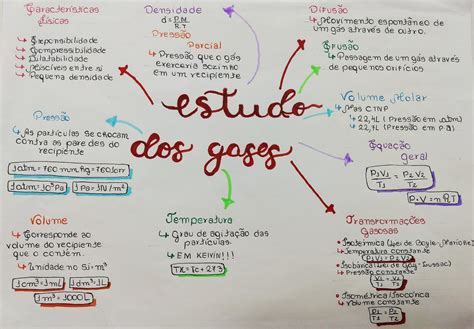 Características
físicas
↳ Expansibilidade
↳ Compressibilidade
↳ Dilatabilidade
↳ Miscíveis entre si
↳ Pequena densidade
Densidade
d = P.M
R.T
Pressão
Parcial
↳ Pressão que o gás
exerceria sozinho
em um recipiente
Difusão
↳ Movimento espontâneo de
um gás através de outro.
Efusão
↳ Passagem de um gás através
de pequenos orifícios
estudo
dos gases
Volume Molar
↳ Nas CTNP
↳ 22,4L (Pressão em atm)
↳ 22,7L (Pressão em Pa)
Pressão
↳ As partículas se chocam
contra as paredes do
recipiente
1atm = 760 mmHg = 760torr
1atm = 10⁵Pa
1Pa = 1N/m²
Equação
geral
P1V1 = P2V2
T1 T2
P.V = nRT
Volume
↳ Corresponde ao
volume do recipiente
que o contém.
↳ Unidade no Si = m³
1cm³ = 1mL
1dm³ = 1L
1m³ = 1000L
Temperatura
↳ Grau de agitação das
partículas.
↳ EM KELVIN!!!
TK = Tc + 273
Transformações
Gasosas
• Isotérmica (Lei de Boyle-Mariotte)
↳ Temperatura constante
P1V1 = P2V2
• Isobárica (Lei de Gay-Lussac)
↳ Pressão constante
V1 = V2
T1 T2
• Isométrica/Isocórica
↳ Volume constante
P1 = P2
T1 T2